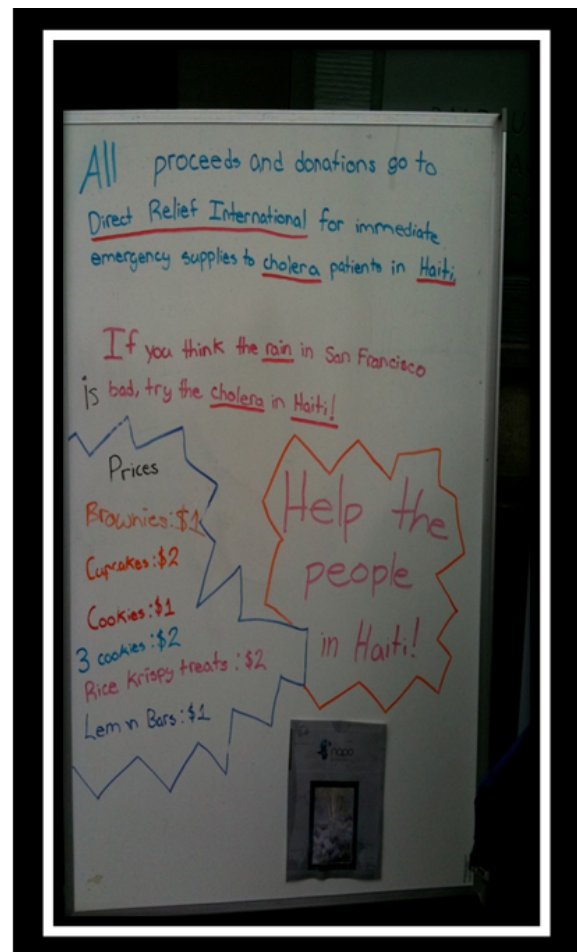 All proceeds and donations go to
Direct Relief International for immediate
emergency supplies to cholera patients in Haiti.
If you think the rain in San Francisco
is bad, try the cholera in Haiti!
Prices
Brownies: $1
Cupcakes: $2
Cookies: $1
3 cookies: $2
Rice Krispy treats: $2
Lem n Bars: $1
Help the
people
in Haiti!